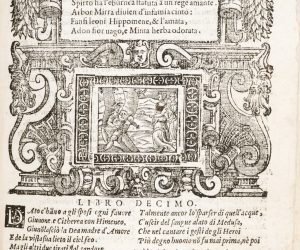 Spirto ha l'eburnea statua à un rege amante.
Arbor Mirra diuien d'infamia canto:
Fansi leoni Hippomene, & l'amata,
Adon fior vago, e Minta herba odorata.
LIBRO DECIMO.
DAto c'hãno a gli sposi ogni fauore
Giunone e Citherea con Himeneo,
la Dea madre d'Amore
E de la vista sua lieto il ciel feo,
Ma gli altri due tirati dal
Talmente ancor lo sparser di quell'acque,
Ch'uscir del sangue alato di Medusa,
Che nel cantar i gesti de gli Heroi
Più degno huomo nõ fu mai prima, nè poi